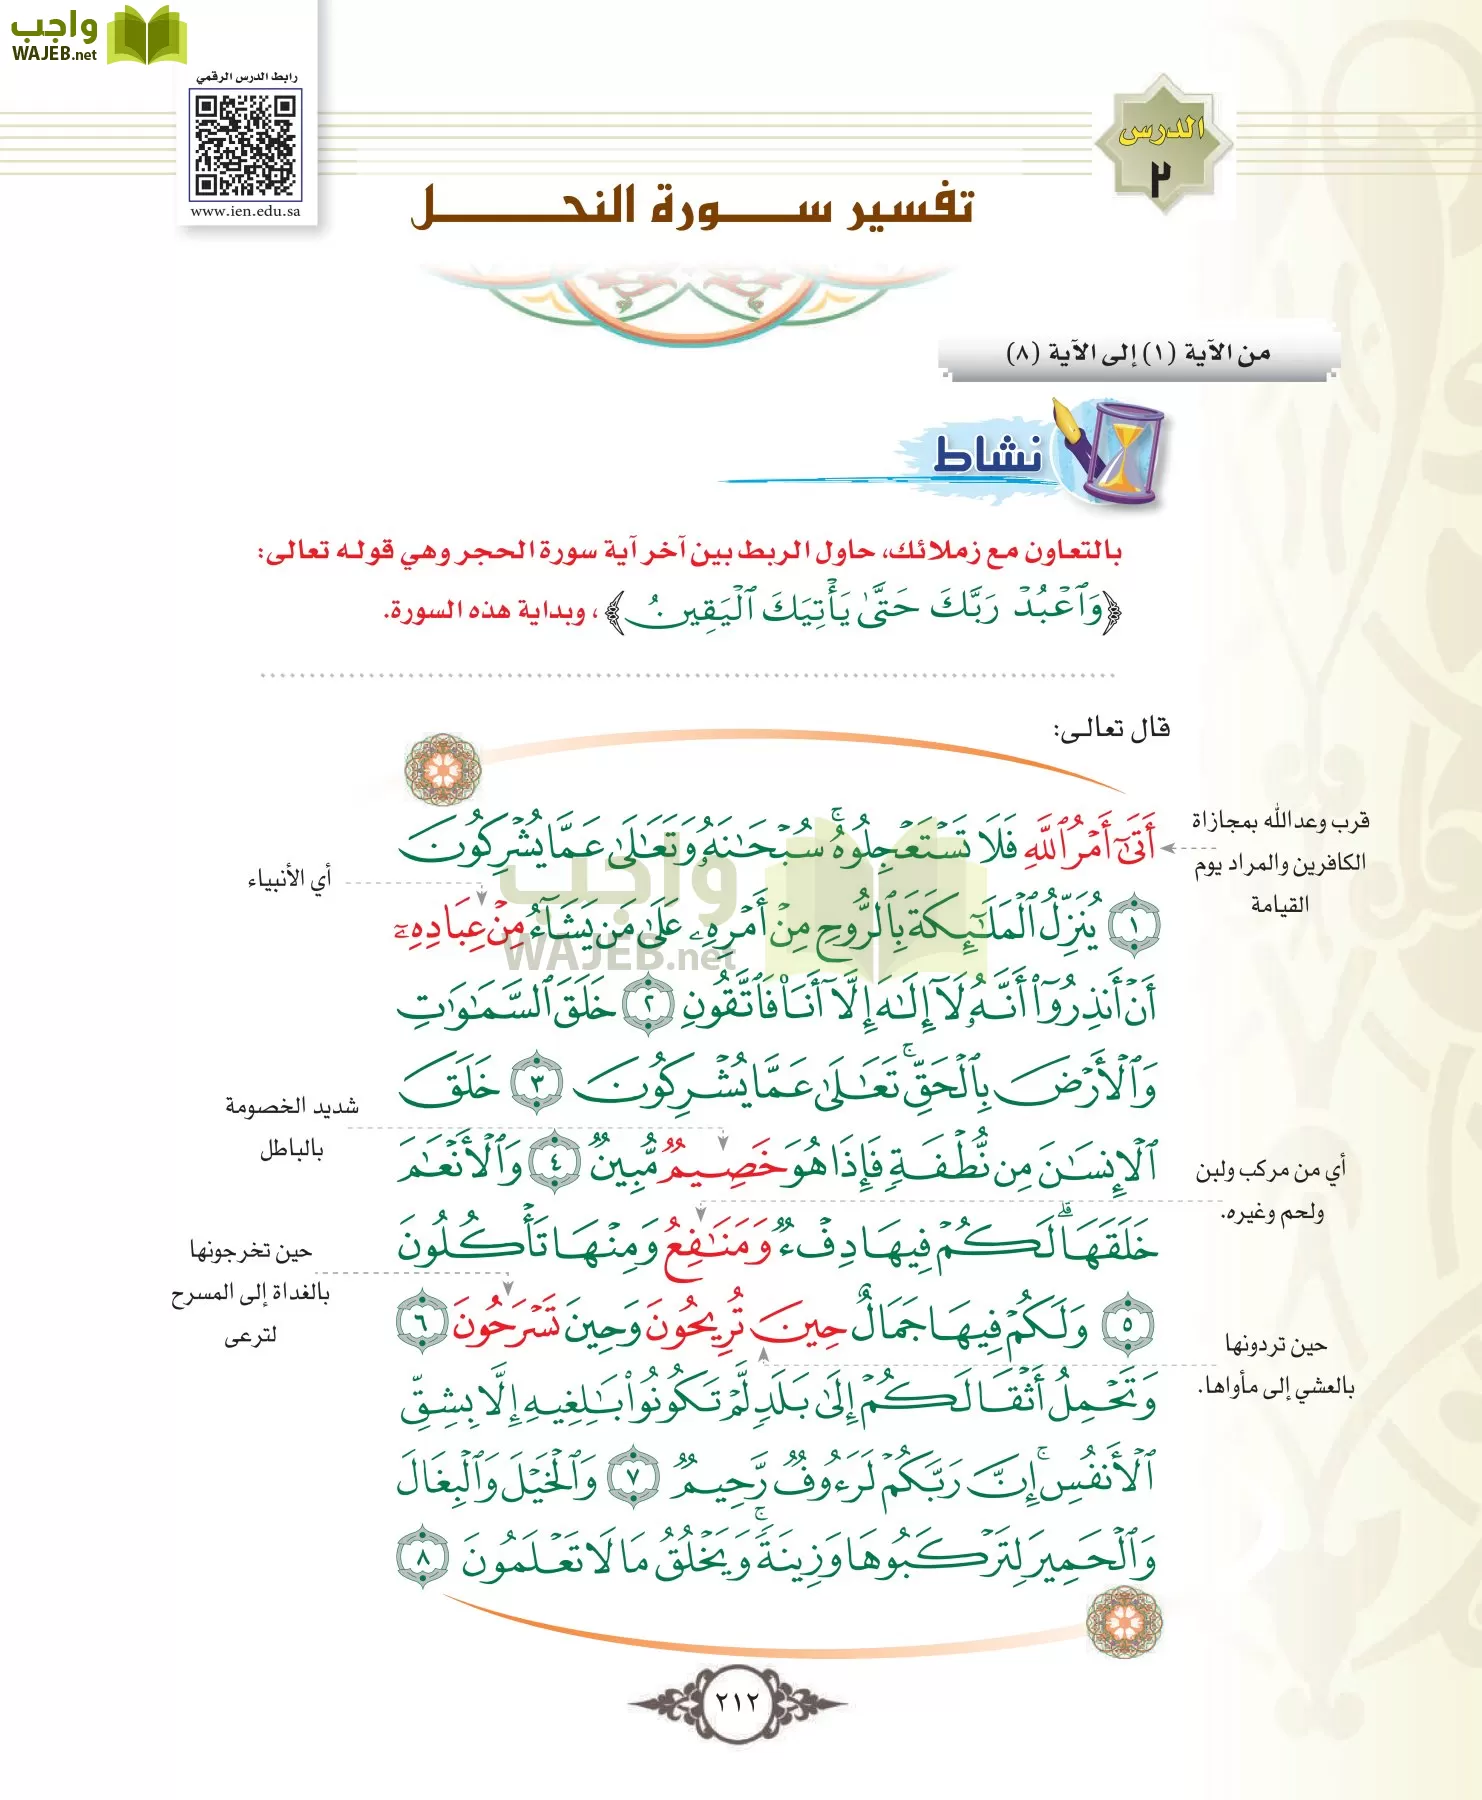 واجب
WAJEB.net
رابط الدرس الرقمي
www.ien.edu.sa
الدرس
٢
تفسير سورة النحل
من الآية (١) إلى الآية (٨)
نشاط
بالتعاون مع زملائك، حاول الربط بين آخر آية سورة الحجر وهي قوله تعالى:
﴿وَٱعۡبُدۡ رَبَّكَ حَتَّىٰ يَأۡتِيَكَ ٱلۡيَقِينُ﴾، وبداية هذه السورة.
قال تعالى:
أَتَىٰٓ أَمۡرُ ٱللَّهِ فَلَا تَسۡتَعۡجِلُوهُۚ سُبۡحَٰنَهُۥ وَتَعَٰلَىٰ عَمَّا يُشۡرِكُونَ
١ يُنَزِّلُ ٱلۡمَلَٰٓئِكَةَ بِٱلرُّوحِ مِنۡ أَمۡرِهِۦ عَلَىٰ مَن يَشَآءُ مِنۡ عِبَادِهِۦٓ
أَنۡ أَنذِرُوٓاْ أَنَّهُۥ لَآ إِلَٰهَ إِلَّآ أَنَا۠ فَٱتَّقُونِ ٢ خَلَقَ ٱلسَّمَٰوَٰتِ
وَٱلۡأَرۡضَ بِٱلۡحَقِّۚ تَعَٰلَىٰ عَمَّا يُشۡرِكُونَ ٣ خَلَقَ
ٱلۡإِنسَٰنَ مِن نُّطۡفَةٖ فَإِذَا هُوَ خَصِيمٞ مُّبِينٞ ٤ وَٱلۡأَنۡعَٰمَ
خَلَقَهَاۖ لَكُمۡ فِيهَا دِفۡءٞ وَمَنَٰفِعُ وَمِنۡهَا تَأۡكُلُونَ
٥ وَلَكُمۡ فِيهَا جَمَالٌ حِينَ تُرِيحُونَ وَحِينَ تَسۡرَحُونَ ٦
وَتَحۡمِلُ أَثۡقَالَكُمۡ إِلَىٰ بَلَدٖ لَّمۡ تَكُونُواْ بَٰلِغِيهِ إِلَّا بِشِقِّ
ٱلۡأَنفُسِۚ إِنَّ رَبَّكُمۡ لَرَءُوفٞ رَّحِيمٞ ٧ وَٱلۡخَيۡلَ وَٱلۡبِغَالَ
وَٱلۡحَمِيرَ لِتَرۡكَبُوهَا وَزِينَةٗۚ وَيَخۡلُقُ مَا لَا تَعۡلَمُونَ ٨
قرب وعد الله بمجازاة
الكافرين والمراد يوم
القيامة
أي الأنبياء
شديد الخصومة
بالباطل
أي من مركب ولبن
ولحم وغيره.
حين تخرجونها
بالغداة إلى المسرح
لترعى
حين تردونها
بالعشي إلى مأواها.
واجب
WAJEB.net
٢١٢